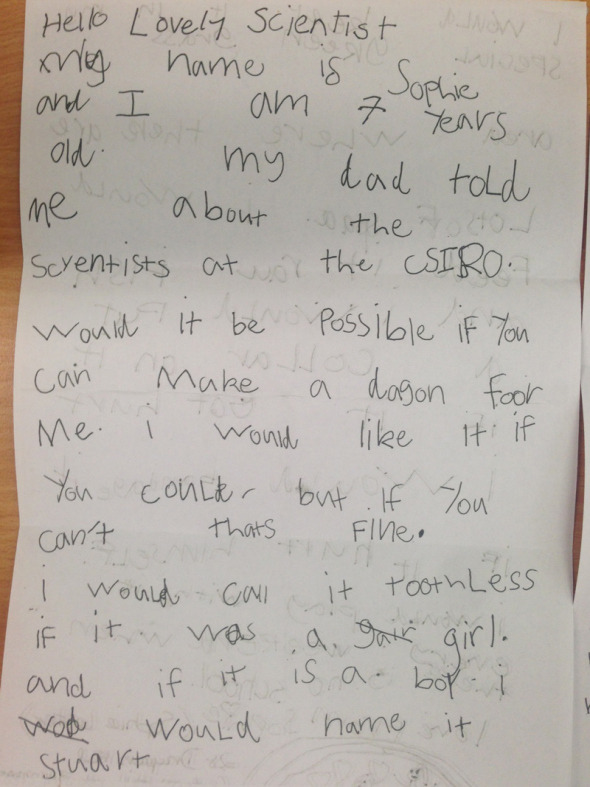 Hello Lovely Scientist
my name is Sophie
and I am 7 Years
old. my dad told
me about the
scyentists at the CSIRO.
would it be Possible if You
can Make a dagon foor
Me. i would like it if
You could, but if You
can't thats fine.
i would call it toothless
if it was a girl.
and if it is a boy i
would name it
stuart